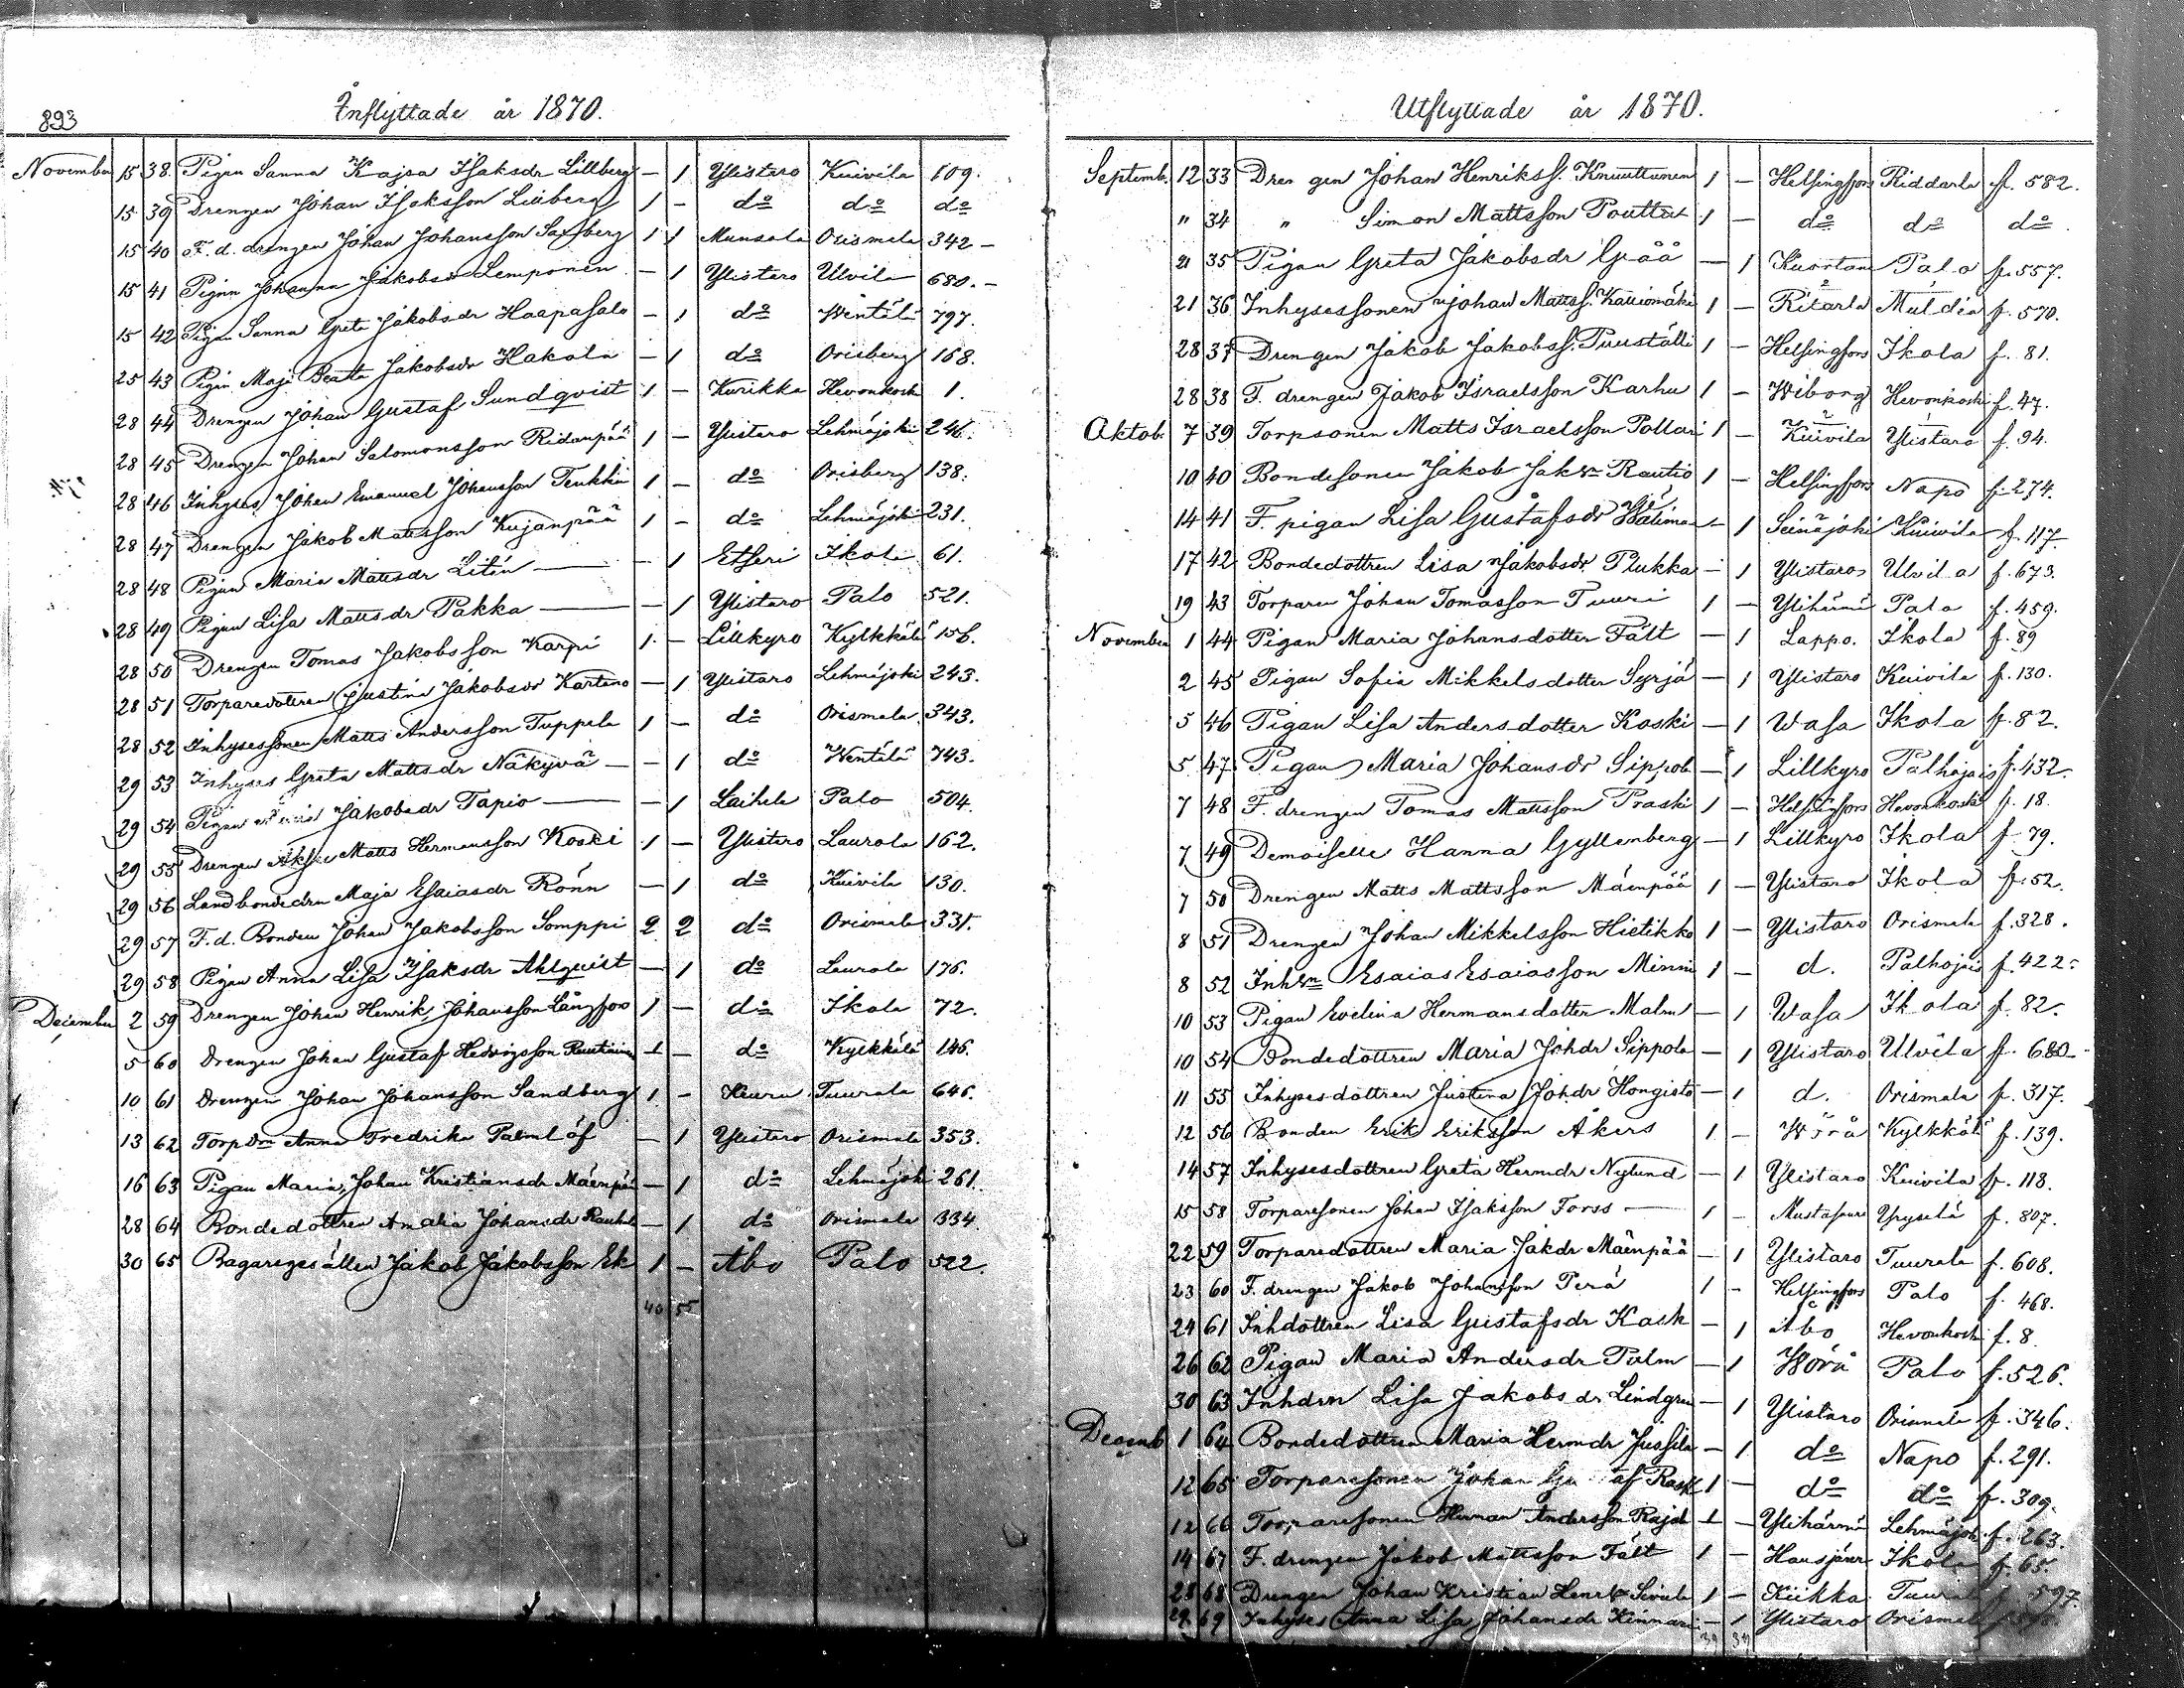 893
Inflyttade år 1870.
November 15 38 Pigan Sanna Kajsa Isaksdr Lillberg — 1 Ylistaro Kuivila 109.
15 39 Drengen Johan Isaksson Lillberg 1 - do do do
15 40 F. d. drengen Johan Johansson Saxberg 1 1 Munsala Orismala 342 -
15 41 Pigan Johanna Jakobsdr Lemponen — 1 Ylistaro Ulvila 680. -
15 42 Pigan Sanna Greta Jakobsdr Haapasalo - 1 do Wentälä 797.
25 43 Pigan Maja Beata Jakobsdr Hakola - 1 do Orisberg 168.
28 44 Drengen Johan Gustaf Sundqvist 1 - Kurikka Hevonkoski 1.
28 45 Drengen Johan Salomonsson Ridanpää 1 - Ylistaro Lehmäjoki 246.
28 46 Inhyses Johan Emanuel Johansson Teukku 1 - do Orisberg 138.
28 47 Drengen Jakob Mattsson Kujanpää 1 - do Lehmäjoki 231.
28 48 Pigan Maria Mattsdr Litin — - 1 Etseri Ikola 61.
28 49 Pigan Lisa Mattsdr Pakka — - 1 Ylistaro Palo 521.
28 50 Drengen Tomas Jakobsson Karpi 1 - Lillkyro Kylkkälä 156.
28 51 Torparedottren Justina Jakobsdr Karteno — 1 Ylistaro Lehmäjoki 243.
28 52 Inhysessonen Matts Andersson Tuppela 1 - do Orismala 343.
29 53 Inhyses Greta Mattsdr Näkyvä — - 1 do Wentälä 743.
29 54 Pigan Jakobsdr Tapio — - 1 Laihela Palo 504.
29 55 Drengen Matts Hermansson Koski 1 — Ylistaro Laurola 162.
29 56 Landbondedrn Maja Esaiasdr Rönn — 1 do Kuivila 130.
29 57 F. d. Bonden Johan Jakobsson Somppi 2 2 do Orismala 331.
29 58 Pigan Anna Lisa Isaksdr Ahlqvist — 1 do Laurola 176.
December 2 59 Drengen Johan Henrik Johansson Långfors 1 — do Ikola 72.
5 60 Drengen Johan Gustaf Hedvigsson 1 - do Kylkkälä 146.
10 61 Drengen Johan Johansson Sandberg 1 - Keuru Tuurala 646.
13 62 Torpdrn Anna Fredrika Palmlöf — 1 Ylistaro Orismala 353.
16 63 Pigan Maria Johan Kristiansdr Mäenpää — 1 do Lehmäjoki 261.
28 64 Bondedottren Amalia Johansdr — 1 do Orismala 334.
30 65 Bagaregesällen Jakob Jakobsson Ek 1 - Åbo Palo 522.
40 55
Utflyttade år 1870.
Septemb. 12 33 Drengen Johan Henrikss. Knuuttunen 1 — Helsingfors Riddarla f. 582.
" 34 " Simon Mattsson Pouttu 1 — do do do
21 35 Pigan Greta Jakobsdr Gåå — 1 Kuortane Palo f. 557.
21 36 Inhysessonen Johan Mattss. Kalliomäki 1 - Ritarla f. 570.
28 37 Drengen Jakob Jakobss. Puuställi 1 — Helsingfors Ikola f. 81.
28 38 F. drengen Jakob Israelsson Karhu 1 - Wiborg Hevonkoski f. 47.
Oktob. 7 39 Torpsonen Matts Israelsson Pollari 1 - Kuivila Ylistaro f. 94.
10 40 Bondesonen Jakob Jaksn Rautio 1 - Helsingfors Napo f. 274.
14 41 F. pigan Lisa Gustafsdr - 1 Seinäjoki Kuivila f. 117.
17 42 Bondedottren Lisa Jakobsdr Plukka - 1 Ylistaro Ulvila f. 673.
19 43 Torparen Johan Tomasson Tuuri 1 — Ylihärmä Palo f. 459.
November 1 44 Pigan Maria Johansdotter Fält — 1 Lappo. Ikola f. 89
2 45 Pigan Sofia Mikkelsdotter Syrjä — 1 Ylistaro Kuivila f. 130.
5 46 Pigan Lisa Andersdotter Koski — 1 Wasa Ikola f. 82.
5 47 Pigan Maria Johansdr Sippola — 1 Lillkyro Palhojais f. 432.
7 48 F. drengen Tomas Mattsson Praski 1 — Helsingfors Hevonkoski f. 18.
7 49 Demoiselle Hanna Gyllenberg — 1 Lillkyro Ikola f. 79.
7 50 Drengen Matts Mattsson Mäenpää 1 — Ylistaro Ikola f. 52.
8 51 Drengen Johan Mikkelsson Hietikko 1 — Ylistaro Orismala f. 328.
8 52 Inhsn Esaias Esaiasson Minni 1 — d. Palhojais f. 422.
10 53 Pigan Evelina Hermansdotter Malm — 1 Wasa Ikola f. 82.
10 54 Bondedottren Maria Johdr Sippola — 1 Ylistaro Ulvila f. 680
11 55 Inhysesdottren Justina Johdr Hongisto — 1 d. Orismala f. 317.
12 56 Bonden Erik Eriksson Åkers 1 - Wörå Kylkkälä f. 139.
14 57 Inhysesdottren Greta Hermdr Nylund — 1 Ylistaro Kuivila f. 118.
15 58 Torparesonen Johan Isaksson Forss — 1 - Mustasaari f. 807.
22 59 Torparedottren Maria Jakdr Mäenpää — 1 Ylistaro Tuurala f. 608.
23 60 F. drengen Jakob Johansson Perä 1 - Helsingfors Palo f. 468.
24 61 Inhdottren Lisa Gustafsdr Kask — 1 Åbo Hevonkoski f. 8.
26 62 Pigan Maria Andersdr Palm — 1 Wörå Palo f. 526.
30 63 Inhdrn Lisa Jakobsdr Lindgren — 1 Ylistaro Orismala f. 346.
Decemb 1 64 Bondedottren Maria Hermdr Jussila — 1 do Napo f. 291.
12 65 Torparesonen Johan Rask 1 — do do f. 309.
12 66 Torparesonen Herman Andersson 1 — Ylihärmä Lehmäjoki f. 263.
14 67 F. drengen Jakob Mattsson Fält 1 — Hausjärvi Ikola f. 65.
28 68 Drengen Johan Kristian 1 - Kiikka Tuurala f. 597.
29 69 Inhyses Anna Lisa Johansdr Kinnari — 1 Ylistaro Orismala